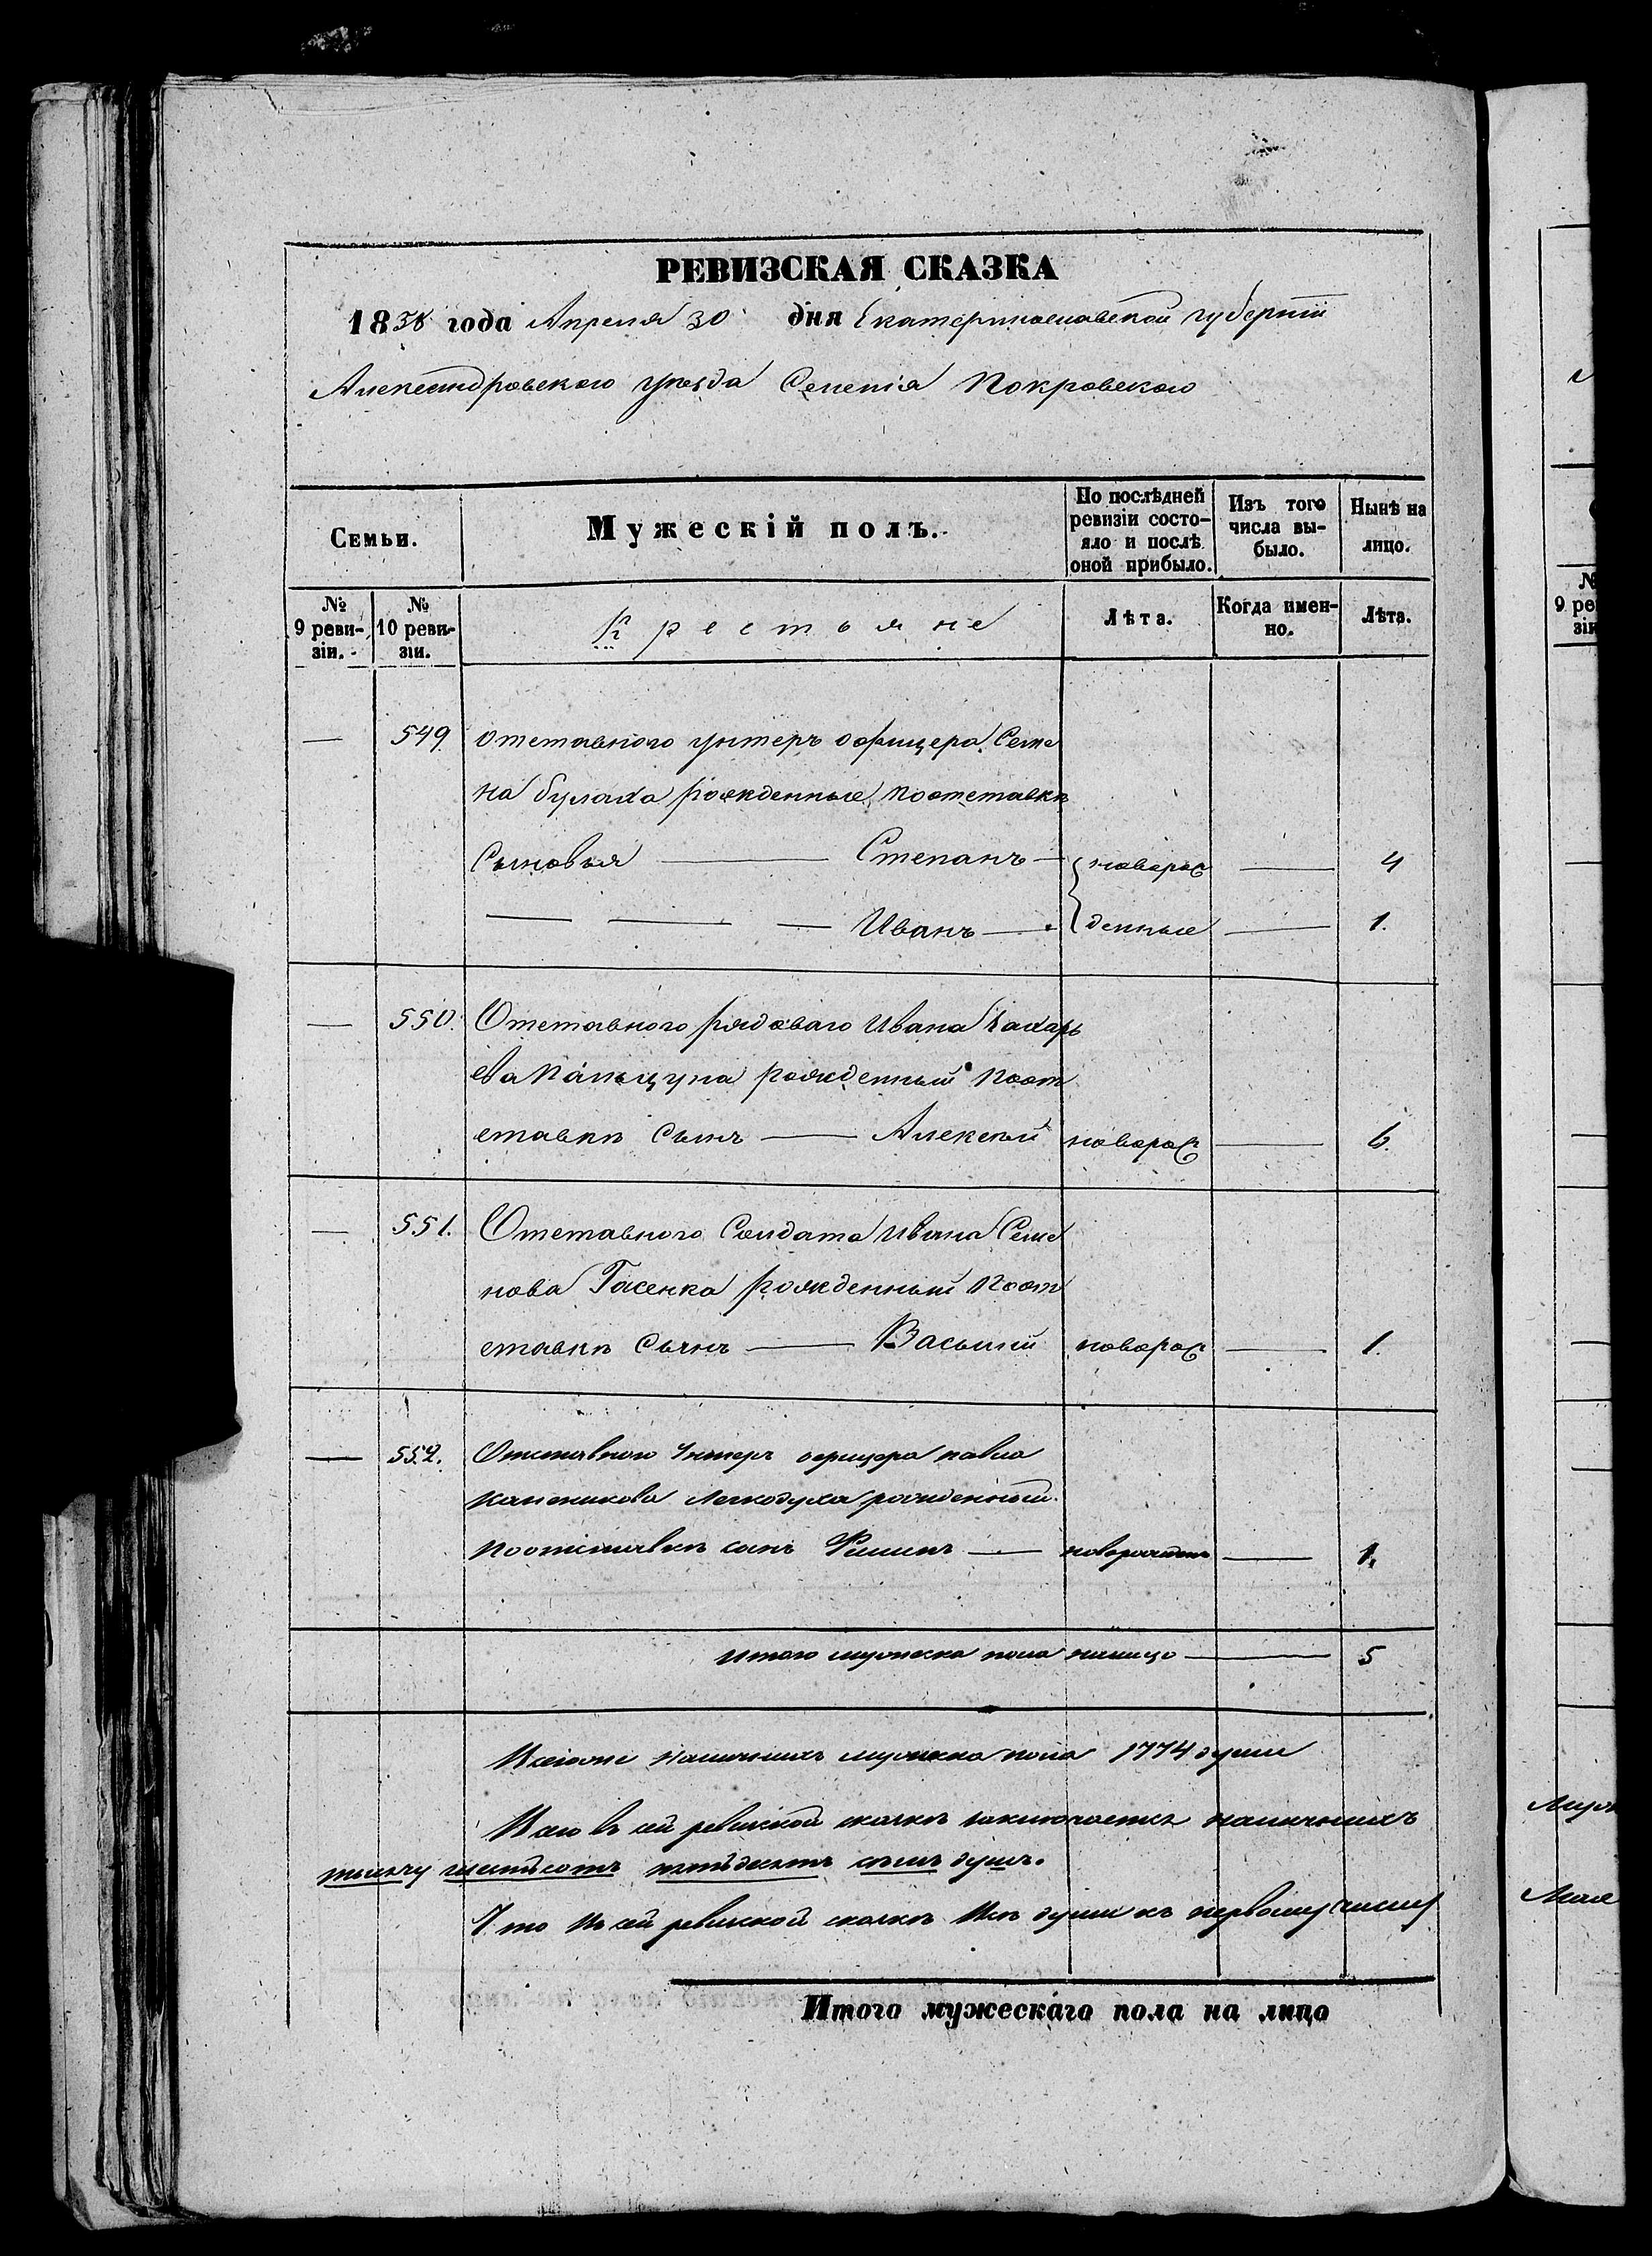 РЕВИЗСКАЯ СКАЗКА
1858 года Апреля 30 дня Екатеринославской губернiи
Александровского уѣзда Селенiя Покровского
Семьи.
Мужескiй полъ.
По послѣдней ревизiи состо-
яло и послѣ
оной прибыло.
Изъ того
числа вы-
было.
Нынѣ на
лицо.
№ 9 реви-
зiи.
№ 10 реви-
зiи.
Крестьяне
Лѣта.
Когда имен-
но.
Лѣта.
— 549 отставного унтеръ офицера Семе
на булаха рожденные поотставкѣ
Сыновья — Степанъ — новорож — 4
— — — Иванъ — денные — 1.
— 550. Отставного рядоваго Ивана Захарь
ева Пальцуна рожденный поот
ставкѣ Сынъ — Алексѣй новорож — 6.
— 551. Отставного Солдата Ивана Семе
нова Гасенка рожденный поот
ставкѣ Сынъ — Василiй новорож — 1.
— 552. Отставного Унтеръ офицера павла
Легкодуха рожденный
поотставкѣ сынъ Филипъ — — 1.
итого мужеска пола налицо — 5
Наличныхъ мужеска пола 1774 души
въ сей ревизской сказкѣ заключается наличныхъ
тысячу шестьсотъ пятьдесятъ семь душъ.
Что въ сей ревизской сказкѣ всѣ души къ первому числу
Итого мужескаго пола на лицо
№
9 ре
зi